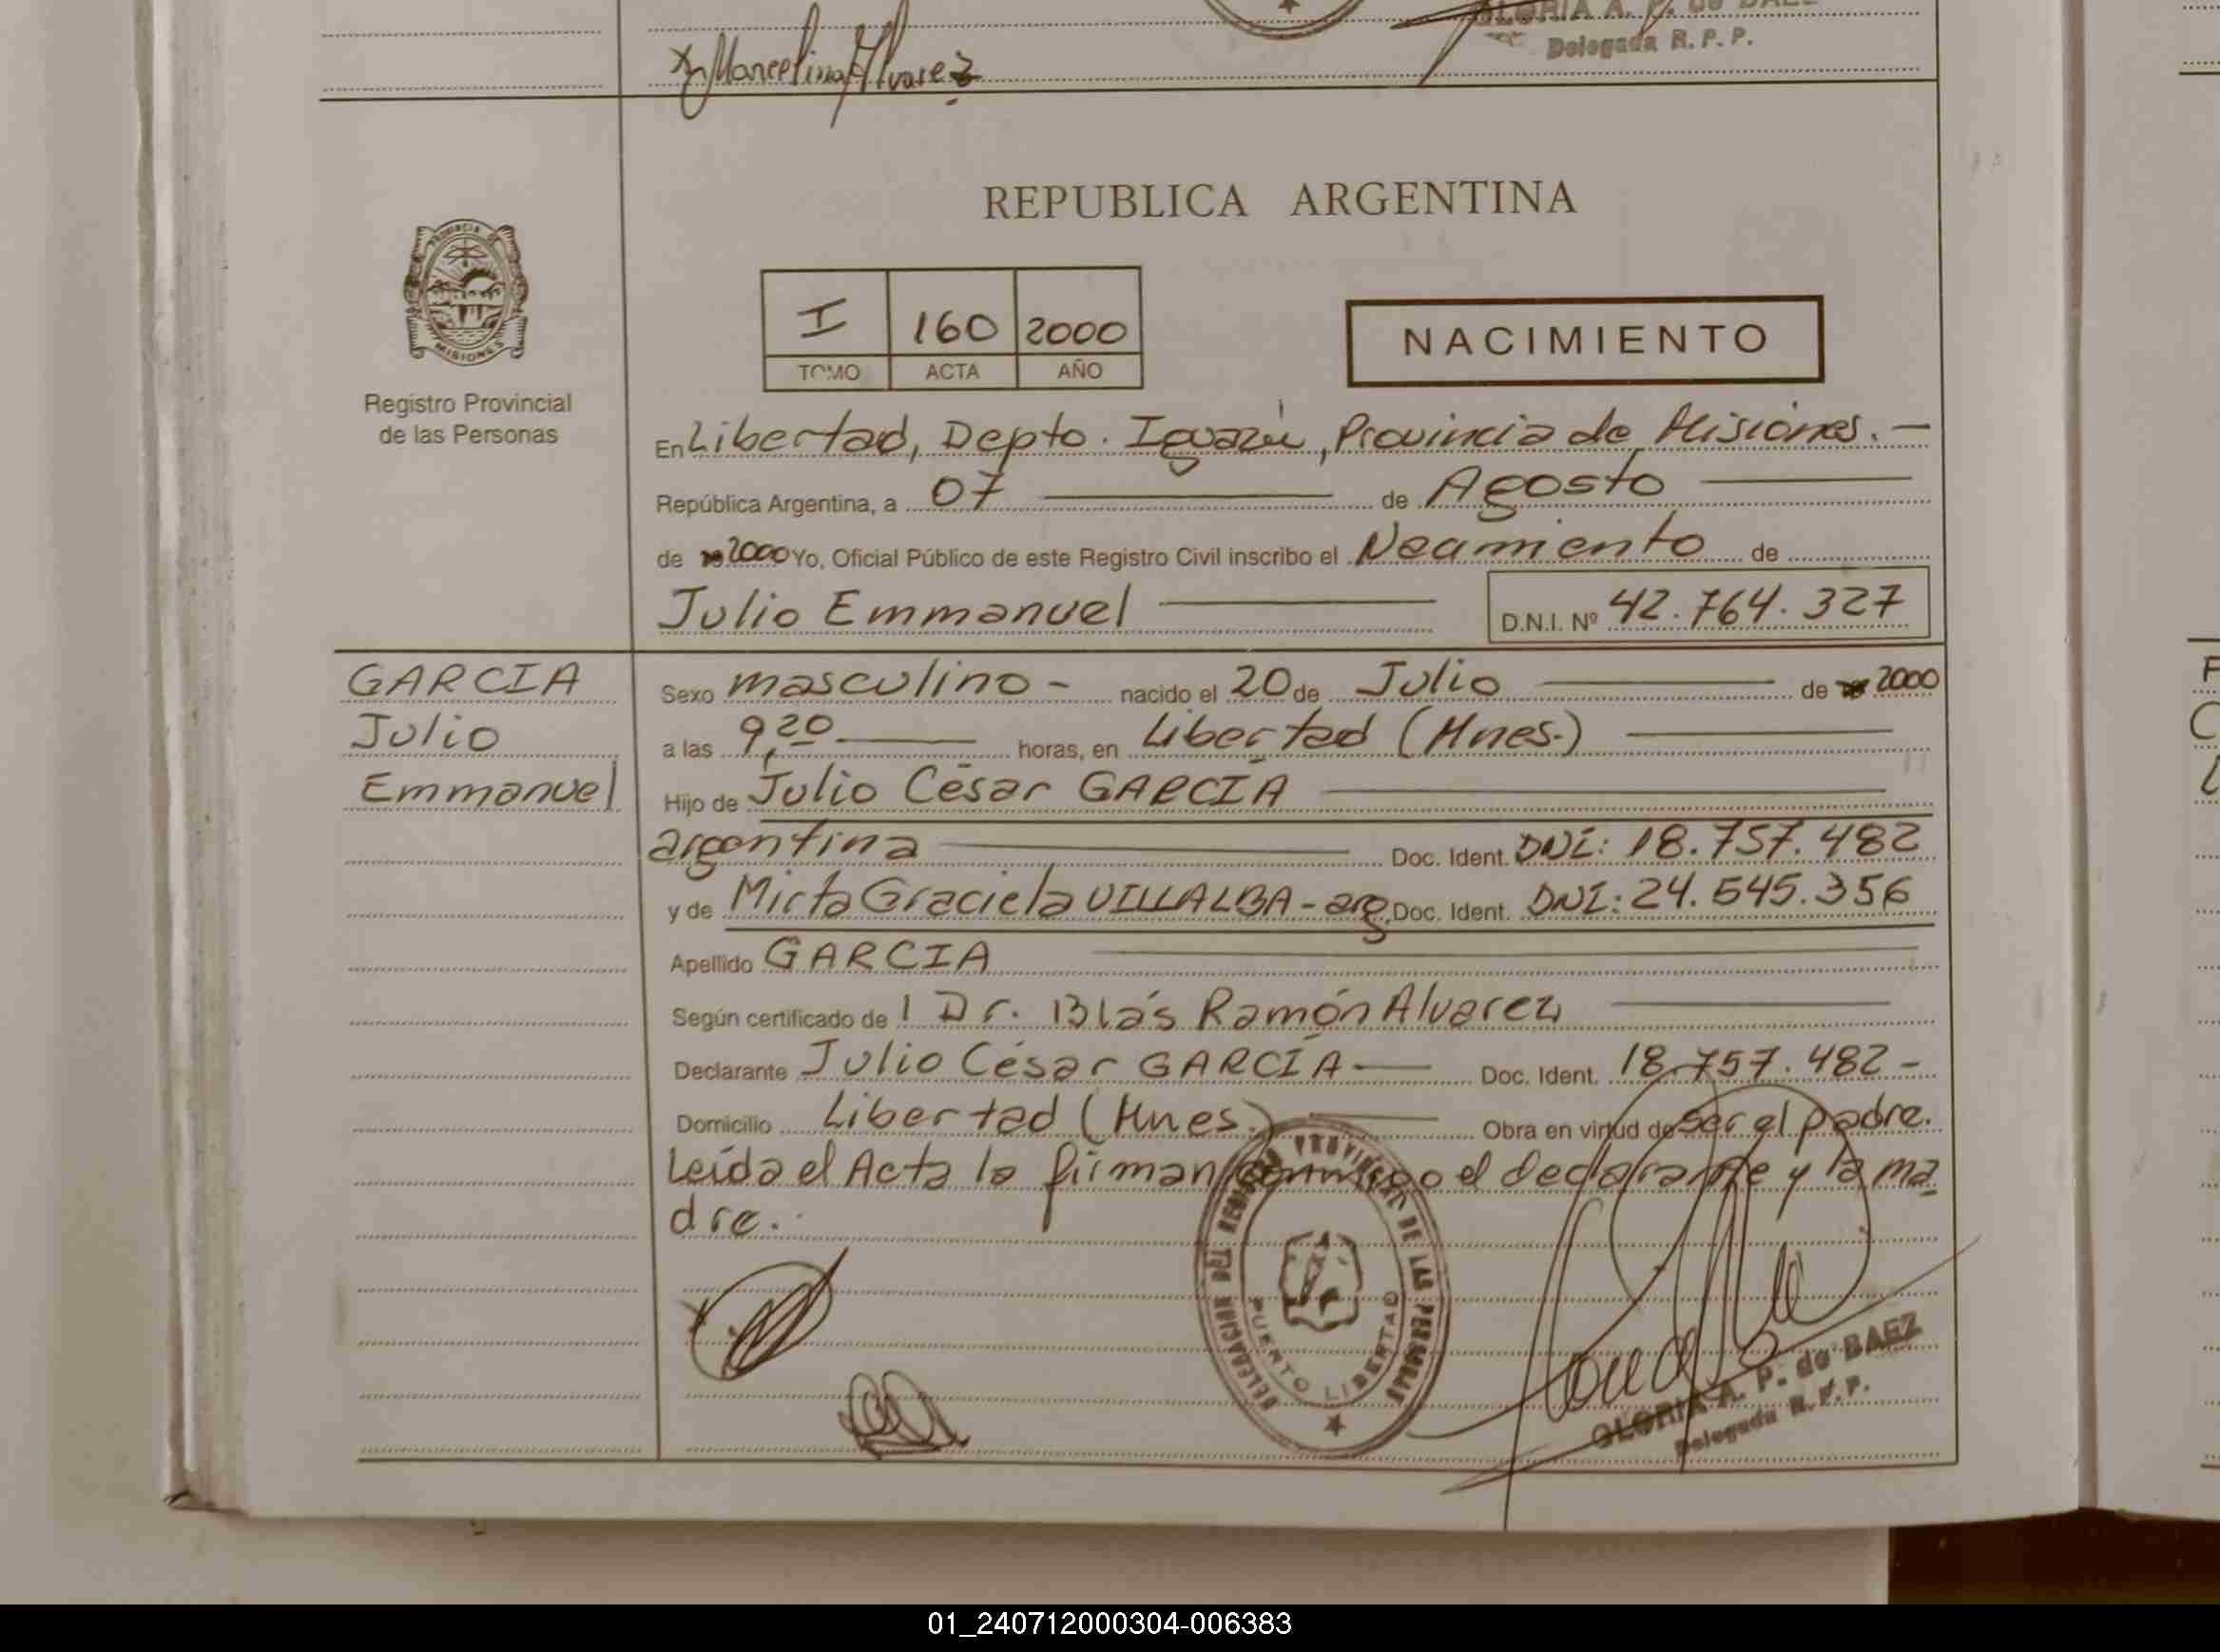 GLORIA A. P. de BAEZ
Delegada R. P. P.
Marcelino Alvarez
REPUBLICA ARGENTINA
PROVINCIA DE
MISIONES
Registro Provincial
de las Personas
I 160 2000
TOMO ACTA AÑO
NACIMIENTO
En Libertad, Depto. Iguazú, Provincia de Misiones. —
República Argentina, a 07 — de Agosto —
de 19 2000 Yo, Oficial Público de este Registro Civil inscribo el Nacimiento de
Julio Emmanuel — D.N.I. Nº 42.764.327
GARCIA
Julio
Emmanuel
Sexo masculino - nacido el 20 de Julio — de 19 2000
a las 9,20 — horas, en Libertad (Mnes.) —
Hijo de Julio César GARCÍA —
argentina — Doc. Ident. DNI: 18.757.482
y de Mirta Graciela VILLALBA - arg. Doc. Ident. DNI: 24.545.356
Apellido GARCIA —
Según certificado de l Dr. Blás Ramón Alvarez —
Declarante Julio César GARCÍA — Doc. Ident. 18.757.482 -
Domicilio Libertad (Mnes.) — Obra en virtud de ser el padre.
Leída el Acta la firman conmigo el declarante y la ma
dre.
DELEGACION DEL REGISTRO PROVINCIAL DE LAS PERSONAS
PUERTO LIBERTAD
GLORIA A. P. de BAEZ
Delegada R. P. P.
01_240712000304-006383